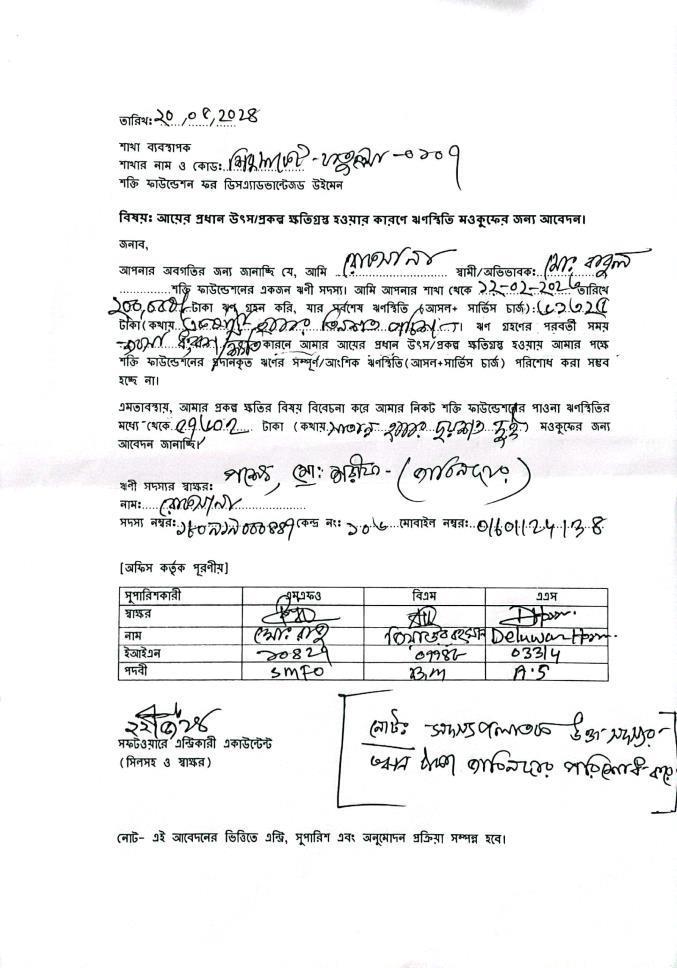 তারিখ: ২০,০৫,২০২৪
শাখা ব্যবস্থাপক
শাখার নাম ও কোড: -০১০৭
শক্তি ফাউন্ডেশন ফর ডিসএ্যাডভান্টেজড উইমেন
বিষয়: আয়ের প্রধান উৎস/প্রকল্প ক্ষতিগ্রস্ত হওয়ার কারণে ঋণস্থিতি মওকুফের জন্য আবেদন।
জনাব,
আপনার অবগতির জন্য জানাচ্ছি যে, আমি রোকসানা স্বামী/অভিভাবক: মোঃ বাবুল
শক্তি ফাউন্ডেশনের একজন ঋণী সদস্য। আমি আপনার শাখা থেকে ২২-০২-২০২৩ তারিখে
টাকা ঋণ গ্রহন করি, যার সর্বশেষ ঋণস্থিতি (আসল+ সার্ভিস চার্জ):
টাকা (কথায় হাজার তিনশত পঁচিশ)। ঋণ গ্রহণের পরবর্তী সময়
কারনে আমার আয়ের প্রধান উৎস/প্রকল্প ক্ষতিগ্রস্ত হওয়ায় আমার পক্ষে
শক্তি ফাউন্ডেশনের প্রদানকৃত ঋণের সম্পূর্ণ/আংশিক ঋণস্থিতি(আসল+সার্ভিস চার্জ) পরিশোধ করা সম্ভব
হচ্ছে না।
এমতাবস্থায়, আমার প্রকল্প ক্ষতির বিষয় বিবেচনা করে আমার নিকট শক্তি ফাউন্ডেশনের পাওনা ঋণস্থিতির
মধ্যে থেকে টাকা (কথায় হাজার ছয়শত দুই) মওকুফের জন্য
আবেদন জানাচ্ছি।
ঋণী সদস্যর স্বাক্ষর: পক্ষে, মো: আরীফ- (জামিনদার)
নাম: রোকসানা
সদস্য নম্বর: কেন্দ্র নং: ১০৬ মোবাইল নম্বর:
[অফিস কর্তৃক পূরণীয়]
সুপারিশকারী এমএফও বিএম এএস
স্বাক্ষর
নাম মোঃ রাজু Deluwar Hossn.
ইআইএন ১০৪২৭ ০৭৭৪৮ 03314
পদবী SMFO B.M A.S
সফটওয়ারে এন্ট্রিকারী একাউন্টেন্ট
(সিলসহ ও স্বাক্ষর)
নোটঃ সদস্য পলাতক উক্ত সদস্যর
টাকা জামিনদার পরিশোধ করে
নোট- এই আবেদনের ভিত্তিতে এন্ট্রি, সুপারিশ এবং অনুমোদন প্রক্রিয়া সম্পন্ন হবে।